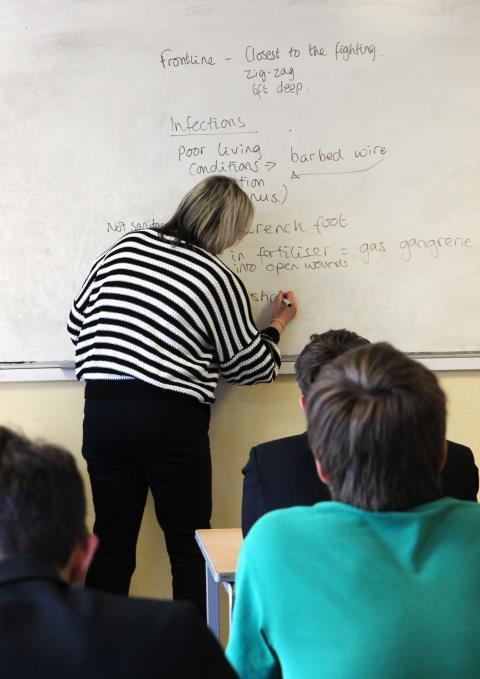 Frontline - Closest to the fighting.
zig-zag
6ft deep.
Infections
Poor living
conditions => barbed wire
Not
trench foot
in fertiliser = gas gangrene
into open wounds